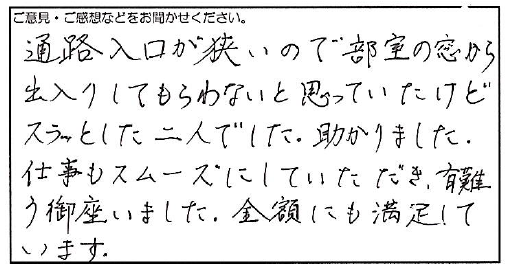 ご意見・ご感想などをお聞かせください。
通路入口が狭いので部室の窓から
出入りしてもらわないと思っていたけど
スラッとした二人でした。助かりました。
仕事もスムーズにしていただき、有難
う御座いました。金額にも満足して
います。